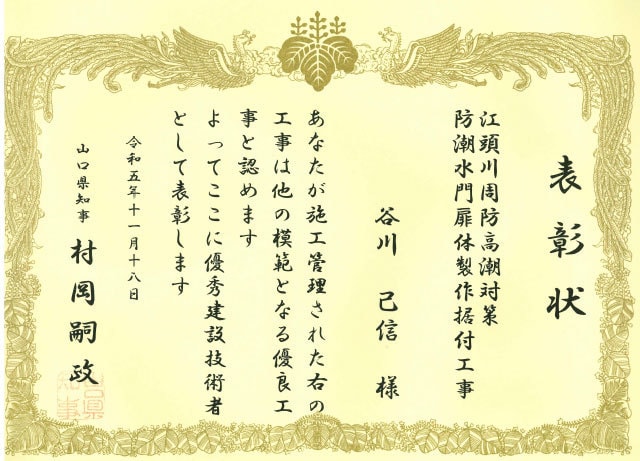 表彰状
江頭川周防高潮対策
防潮水門扉体製作据付工事
谷川 己信 様
あなたが施工管理された右の
工事は他の模範となる優良工
事と認めます
よってここに優秀建設技術者
として表彰します
令和五年十一月十八日
山口県知事 村岡嗣政